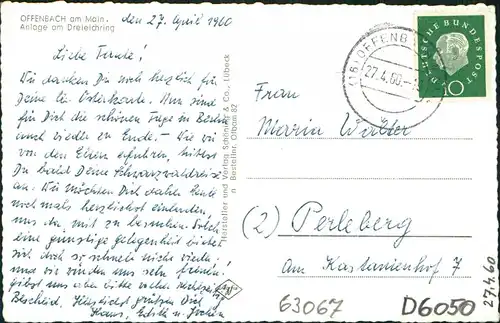 OFFENBACH am Main.
Anlage am Dreieichring
den 27. April 1960
Liebe Tante!
Wir danken Dir noch herzlich für
Deine lb. Osterkarte. Nun sind
für Dich die schönen Tage in
auch wieder zu Ende. – Wie wir
von den Eltern erfuhren, trittst
Du bald Deine Schwarzwaldreise
an. Wir möchten Dich daher heute
nochmals herzlichst einladen,
uns zu besuchen. Solch
eine günstige Gelegenheit bietet
sich doch so schnell nicht wieder
und wir würden uns sehr freuen!
Gibst uns aber bitte vorher rechtzeitig
Bescheid. Herzlichst grüßen Dich
Hans, u. Jochen
Hersteller und Verlag Schöning & Co., Lübeck
Bestellnr. Offbm 82
(16) OFFENB
27.4.60.-1
DEUTSCHE BUNDESPOST
10
Frau
Maria Walter
(2) Perleberg
Am Kastanienhof 7
63067
D6050
27.4.60